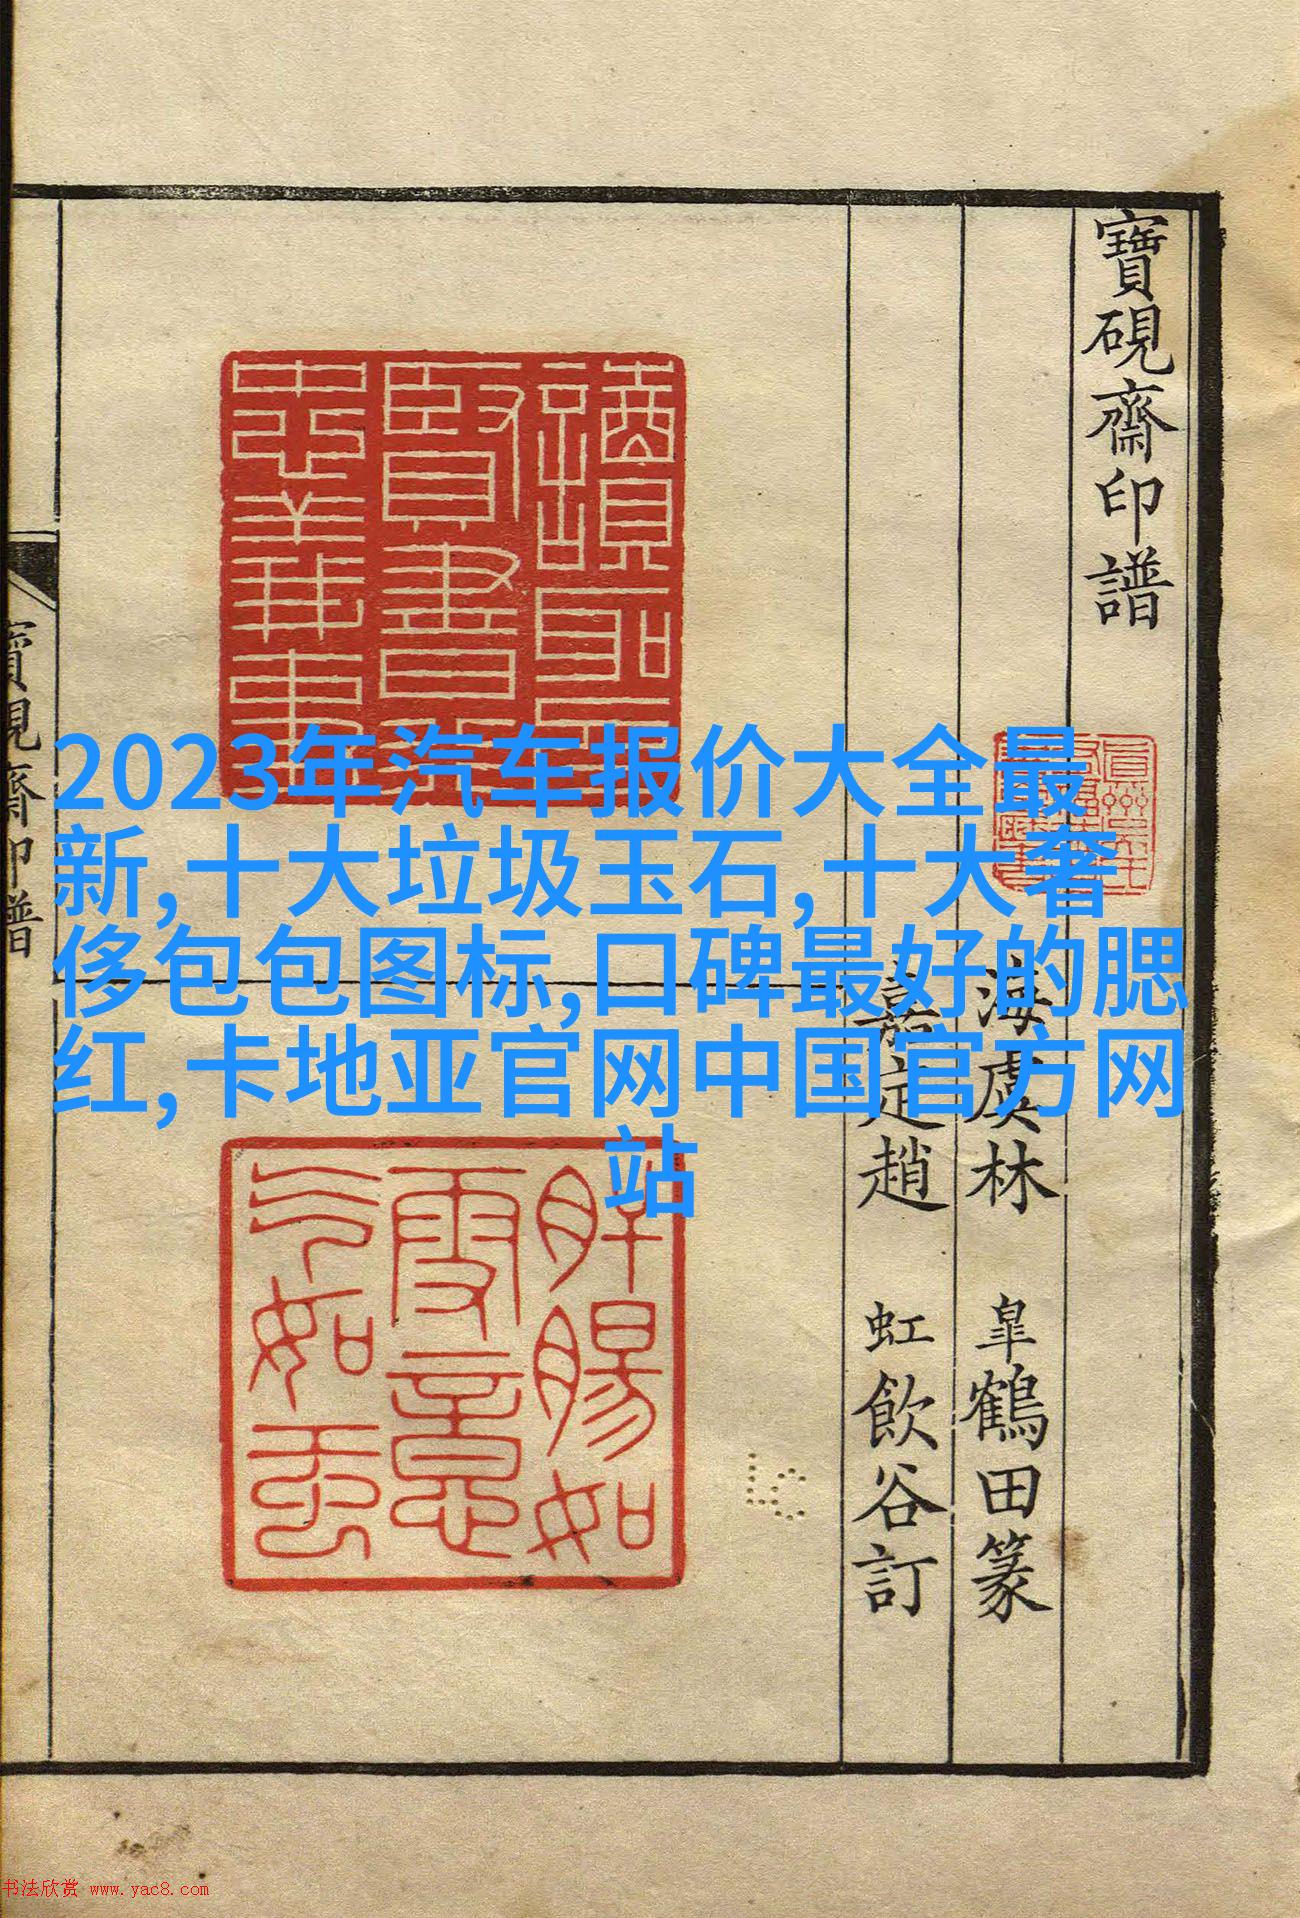 寶硯齋印譜
海虞林 皐鶴田篆
嘉定趙 虹飲谷訂
讀聖
賢書
忠義事
肝腸如
雪意
气如
寶硯齋印譜
2023年汽车报价大全最
新,十大垃圾玉石,十大奢
侈包包图标,口碑最好的腮
红,卡地亚官网中国官方网
站
LC
书法欣赏 www.yac8.com